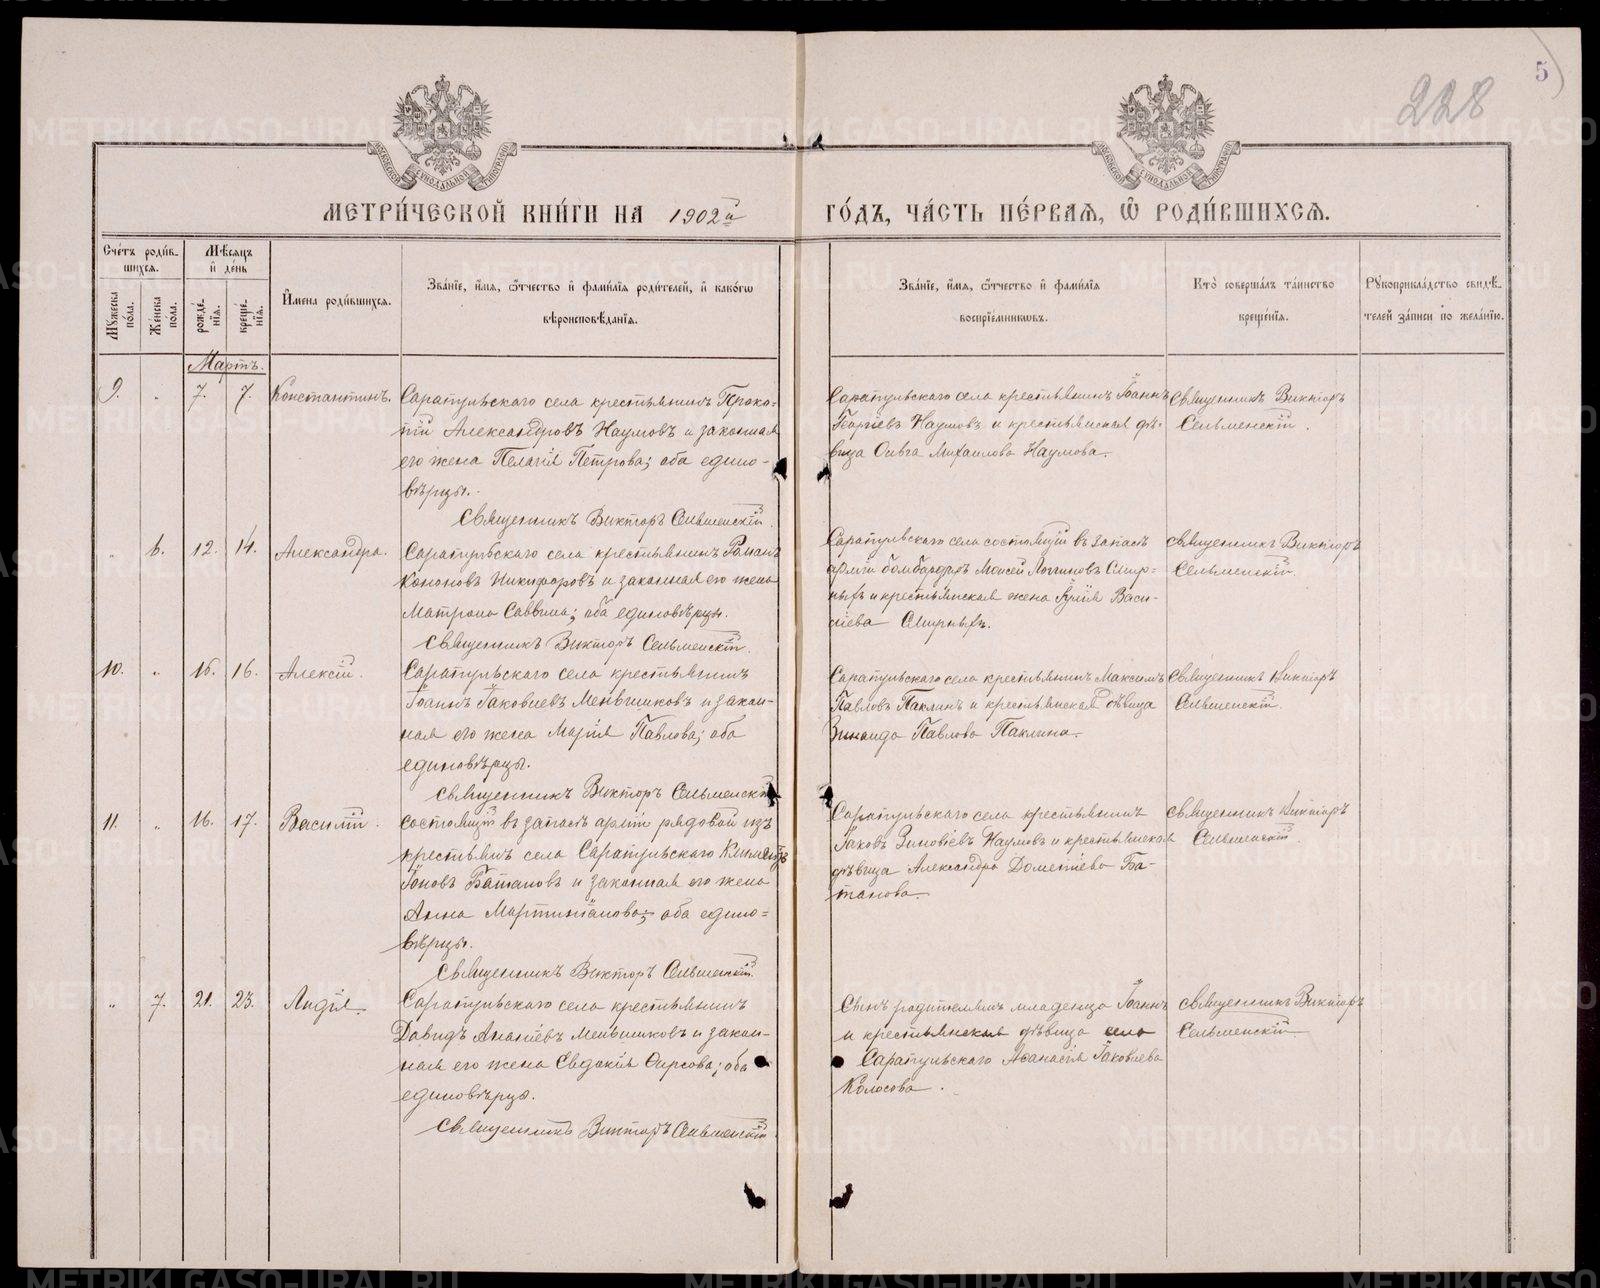 5
228
МЕТРИ́ЧЕСКОЙ КНИ́ГИ НА 1902й ГО́ДЪ, ЧА́СТЬ ПЕ́РВАѦ, Ѿ РОДИ́ВШИХСѦ.
Сче́тъ роди́в-
шихсѧ.
Мѣ́сѧцъ
и҆ де́нь
И҆мена роди́вшихсѧ.
Зва́нїе, и҆́мѧ, ѻ҆́тчество и҆ фами́лїѧ роди́телей, и҆ како́гѡ
вѣроисповѣ́данїѧ.
Зва́нїе, и҆́мѧ, ѻ҆́тчество и҆ фами́лїѧ
воспрїе́мникѡвъ.
Кто̀ соверша́лъ та́инство
креще́нїѧ.
Рꙋкоприкла́дство свидѣ́-
телей за́писи по жела́нїю.
Мꙋ́жеска
по́ла.
Же́нска
по́ла.
рожде́-
нїѧ.
креще́-
нїѧ.
Мартъ.
9. „ 7. 7. Константинъ.
Сарапульскаго села крестьянинъ Проко-
пій Александровъ Наумовъ и законная
его жена Пелагія Петрова; оба едино-
вѣрцы.
Священникъ Викторъ Сельменскій.
Сарапульскаго села крестьянинъ Іоаннъ
Георгіевъ Наумовъ и крестьянская дѣ-
вица Ольга Михаилова Наумова.
Священникъ Викторъ
Сельменскій.
„ 6. 12. 14. Александра.
Сарапульскаго села крестьянинъ Романъ
Кононовъ Никифоровъ и законная его жена
Матрона Саввина; оба единовѣрцы.
Священникъ Викторъ Сельменскій.
Сарапульскаго села состоящій въ запасѣ
арміи бомбардиръ Моисей Логиновъ Смир-
ныхъ и крестьянская жена Іулія Васи-
ліева Смирныхъ.
Священникъ Викторъ
Сельменскій.
10. „ 15. 16. Алексій.
Сарапульскаго села крестьянинъ
Іоаннъ Іаковлевъ Меньшиковъ и закон-
ная его жена Марія Павлова; оба
единовѣрцы.
Священникъ Викторъ Сельменскій
Сарапульскаго села крестьянинъ Максимъ
Павловъ Паклинъ и крестьянская дѣвица
Зинаида Павлова Паклина.
Священникъ Викторъ
Сельменскій.
11. „ 16. 17. Василій.
Состоящій въ запасѣ арміи рядовой изъ
крестьянъ села Сарапульскаго Климентъ
Іоновъ Батановъ и законная его жена
Анна Мартиніанова; оба едино-
вѣрцы.
Священникъ Викторъ Сельменскій.
Сарапульскаго села крестьянинъ
Іаковъ Зиновіевъ Наумовъ и крестьянская
дѣвица Александра Дометіева Ба-
танова.
Священникъ Викторъ
Сельменскій.
„ 7. 21. 23. Лидія.
Сарапульскаго села крестьянинъ
Давидъ Ананіевъ Меньшиковъ и закон-
ная его жена Евдокія Ѳирсова; оба
единовѣрцы.
Священникъ Викторъ Сельменскій
Сынъ родителямъ младенца Іоаннъ
и крестьянская дѣвица села
Сарапульскаго Аѳанасія Іаковлева
Колосова.
Священникъ Викторъ
Сельменскій